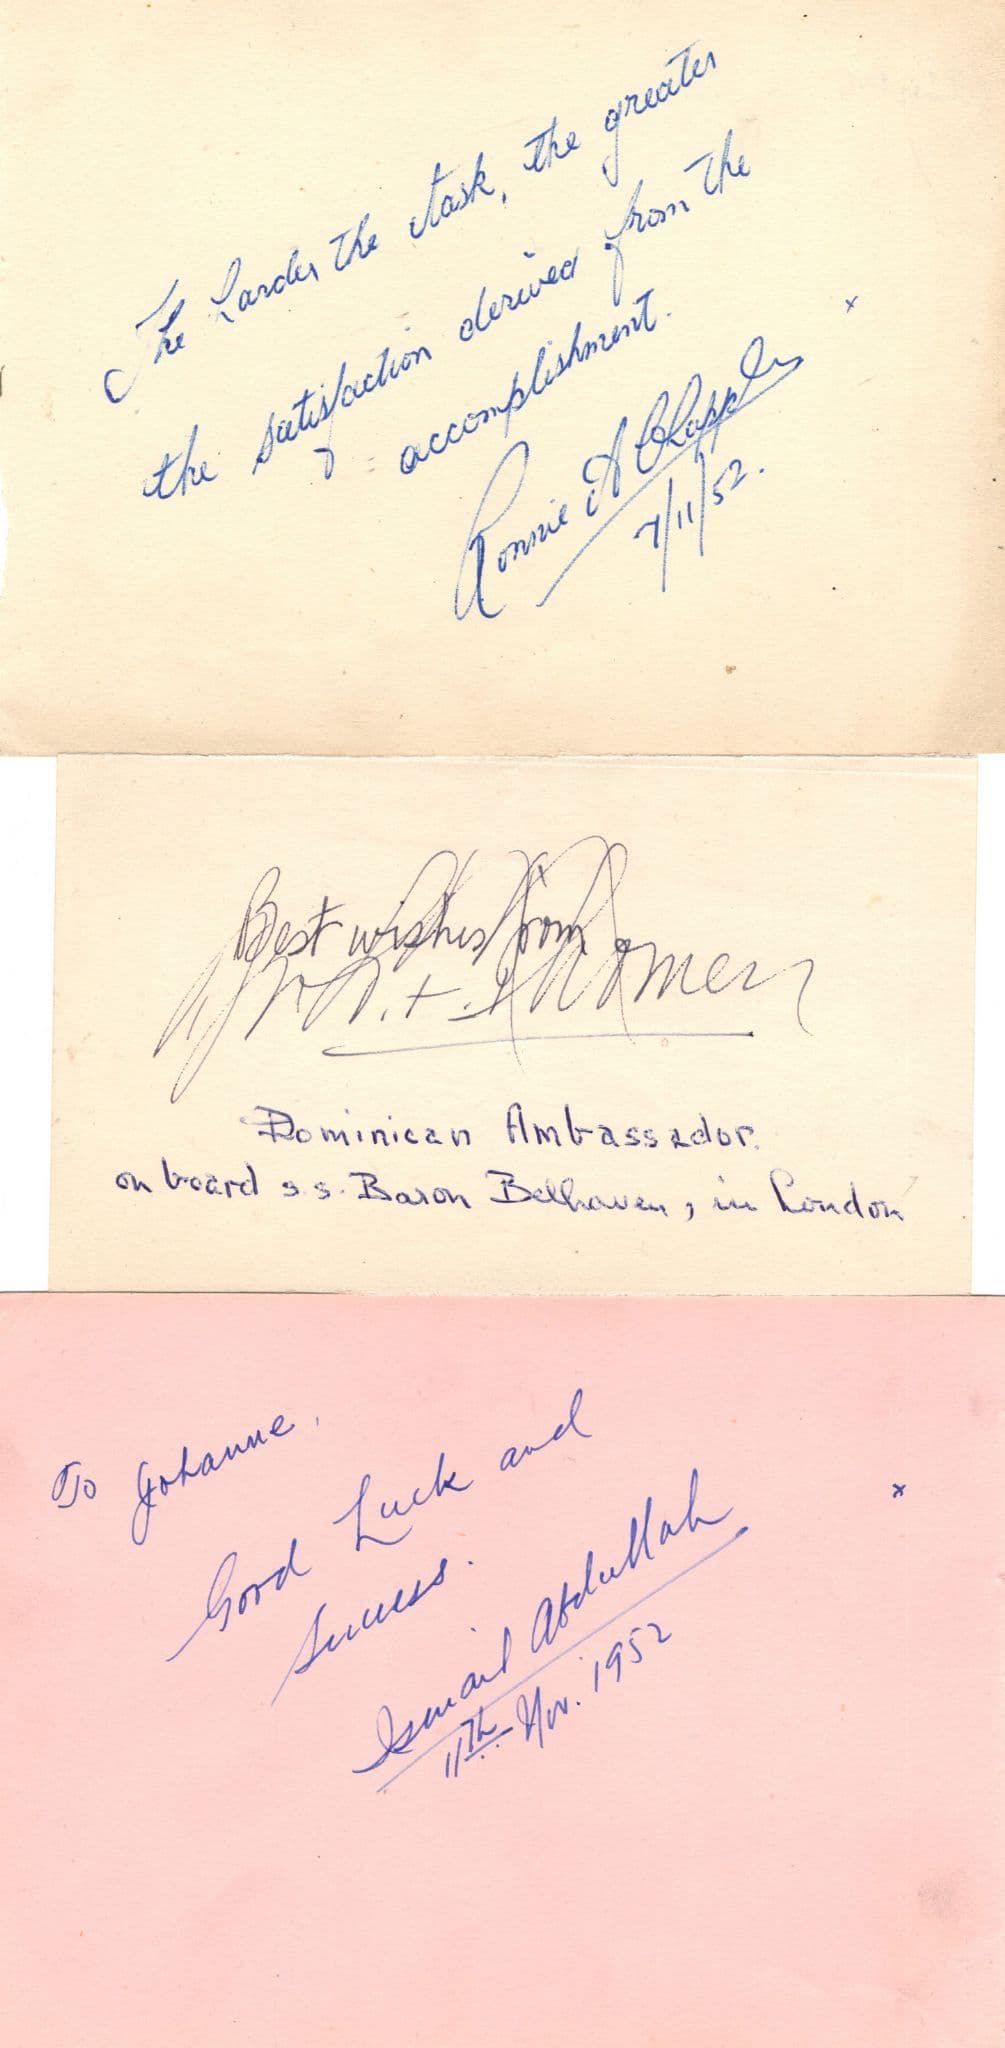 The harder the task, the greater
the satisfaction derived from the
accomplishment.
Ronnie A
7/11/52.
x
Best wishes from
Dominican Ambassador.
on board s.s. Baron Belhaven, in London
To Johanne,
Good Luck and
Success.
x
Ismail Abdullah
11th Nov. 1952